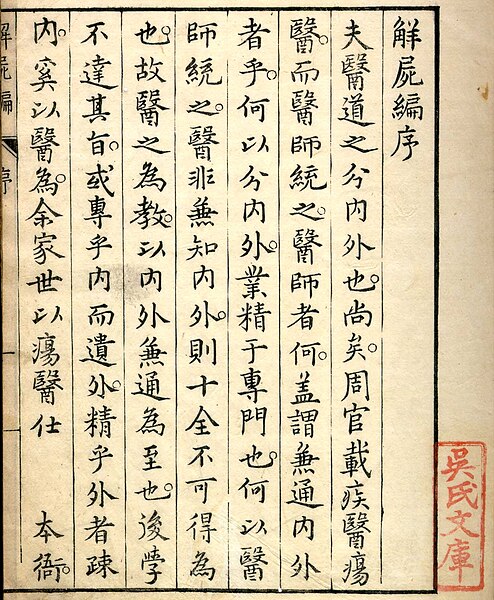 解屍編序
夫醫道之分内外也尚矣。周官載疾醫瘍
醫。而醫師統之。醫師者何。盖謂兼通内外
者乎。何以分内外。業精于專門也。何以醫
師統之。醫非兼知内外。則十全不可得為
也。故醫之為教。以内外兼通為至也。後學
不達其旨。或專乎内而遺外。精乎外者疎
内。奚以醫為。余家世以瘍醫仕　本衙。
解屍編
序
一
吳氏文庫